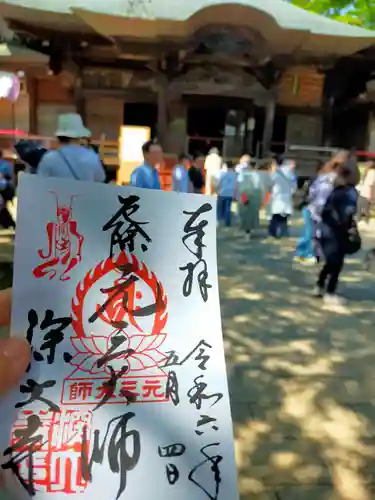 奉拝
令和六年
五月四日
元三大師
深大寺
元三大師